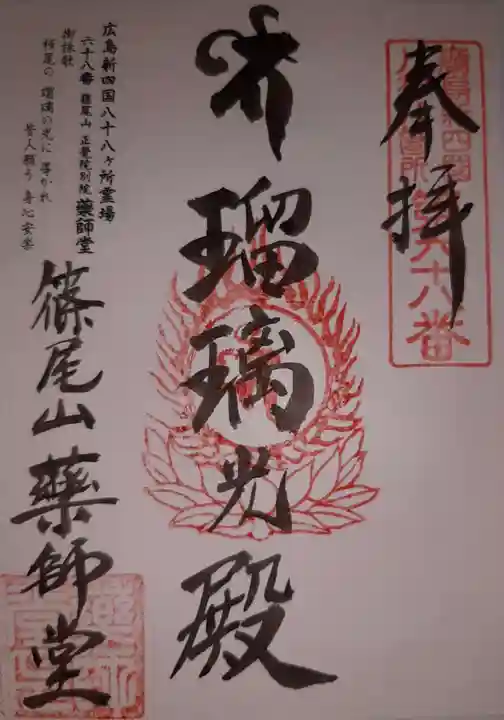 奉拝
第六十八番
瑠璃光殿
広島新四国八十八ヶ所霊場
六十八番 篠尾山 正覺院別院 藥師堂
御詠歌
篠尾の 瑠璃の光に 導かれ
諸人願う 身心安楽
篠尾山藥師堂